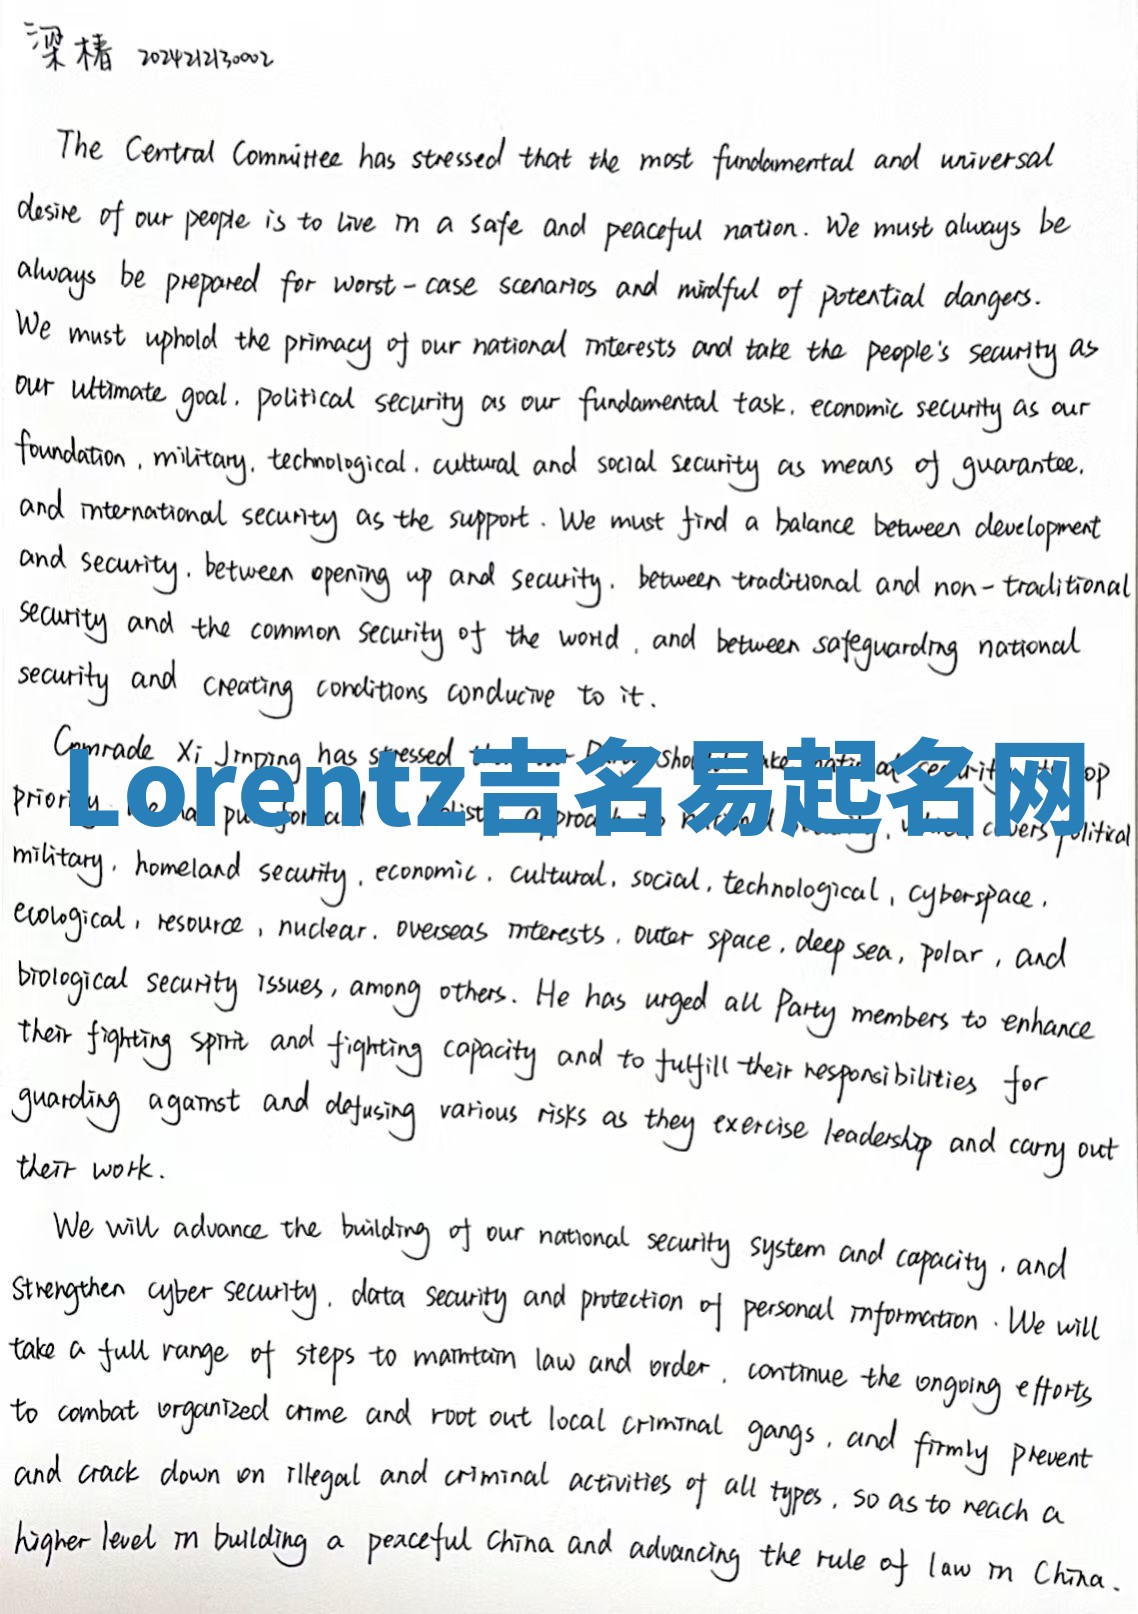 梁椿 2024212130002
The Central Committee has stressed that the most fundamental and universal
desire of our people is to live in a safe and peaceful nation. We must always be
always be prepared for worst-case scenarios and mindful of potential dangers.
We must uphold the primacy of our national interests and take the people's security as
our ultimate goal, political security as our fundamental task, economic security as our
foundation, military, technological, cultural and social security as means of guarantee,
and international security as the support. We must find a balance between development
and security, between opening up and security, between traditional and non-traditional
security and the common security of the world, and between safeguarding national
security and creating conditions conducive to it.
Comrade Xi Jinping has stressed should national security top
Lorentz吉名易起名网
priority. put approach to national covers political
military, homeland security, economic, cultural, social, technological, cyberspace,
ecological, resource, nuclear, overseas interests, outer space, deep sea, polar, and
biological security issues, among others. He has urged all Party members to enhance
their fighting spirit and fighting capacity and to fulfill their responsibilities for
guarding against and defusing various risks as they exercise leadership and carry out
their work.
We will advance the building of our national security system and capacity, and
strengthen cyber security, data security and protection of personal information. We will
take a full range of steps to maintain law and order, continue the ongoing efforts
to combat organized crime and root out local criminal gangs, and firmly prevent
and crack down on illegal and criminal activities of all types, so as to reach a
higher level in building a peaceful China and advancing the rule of law in China.